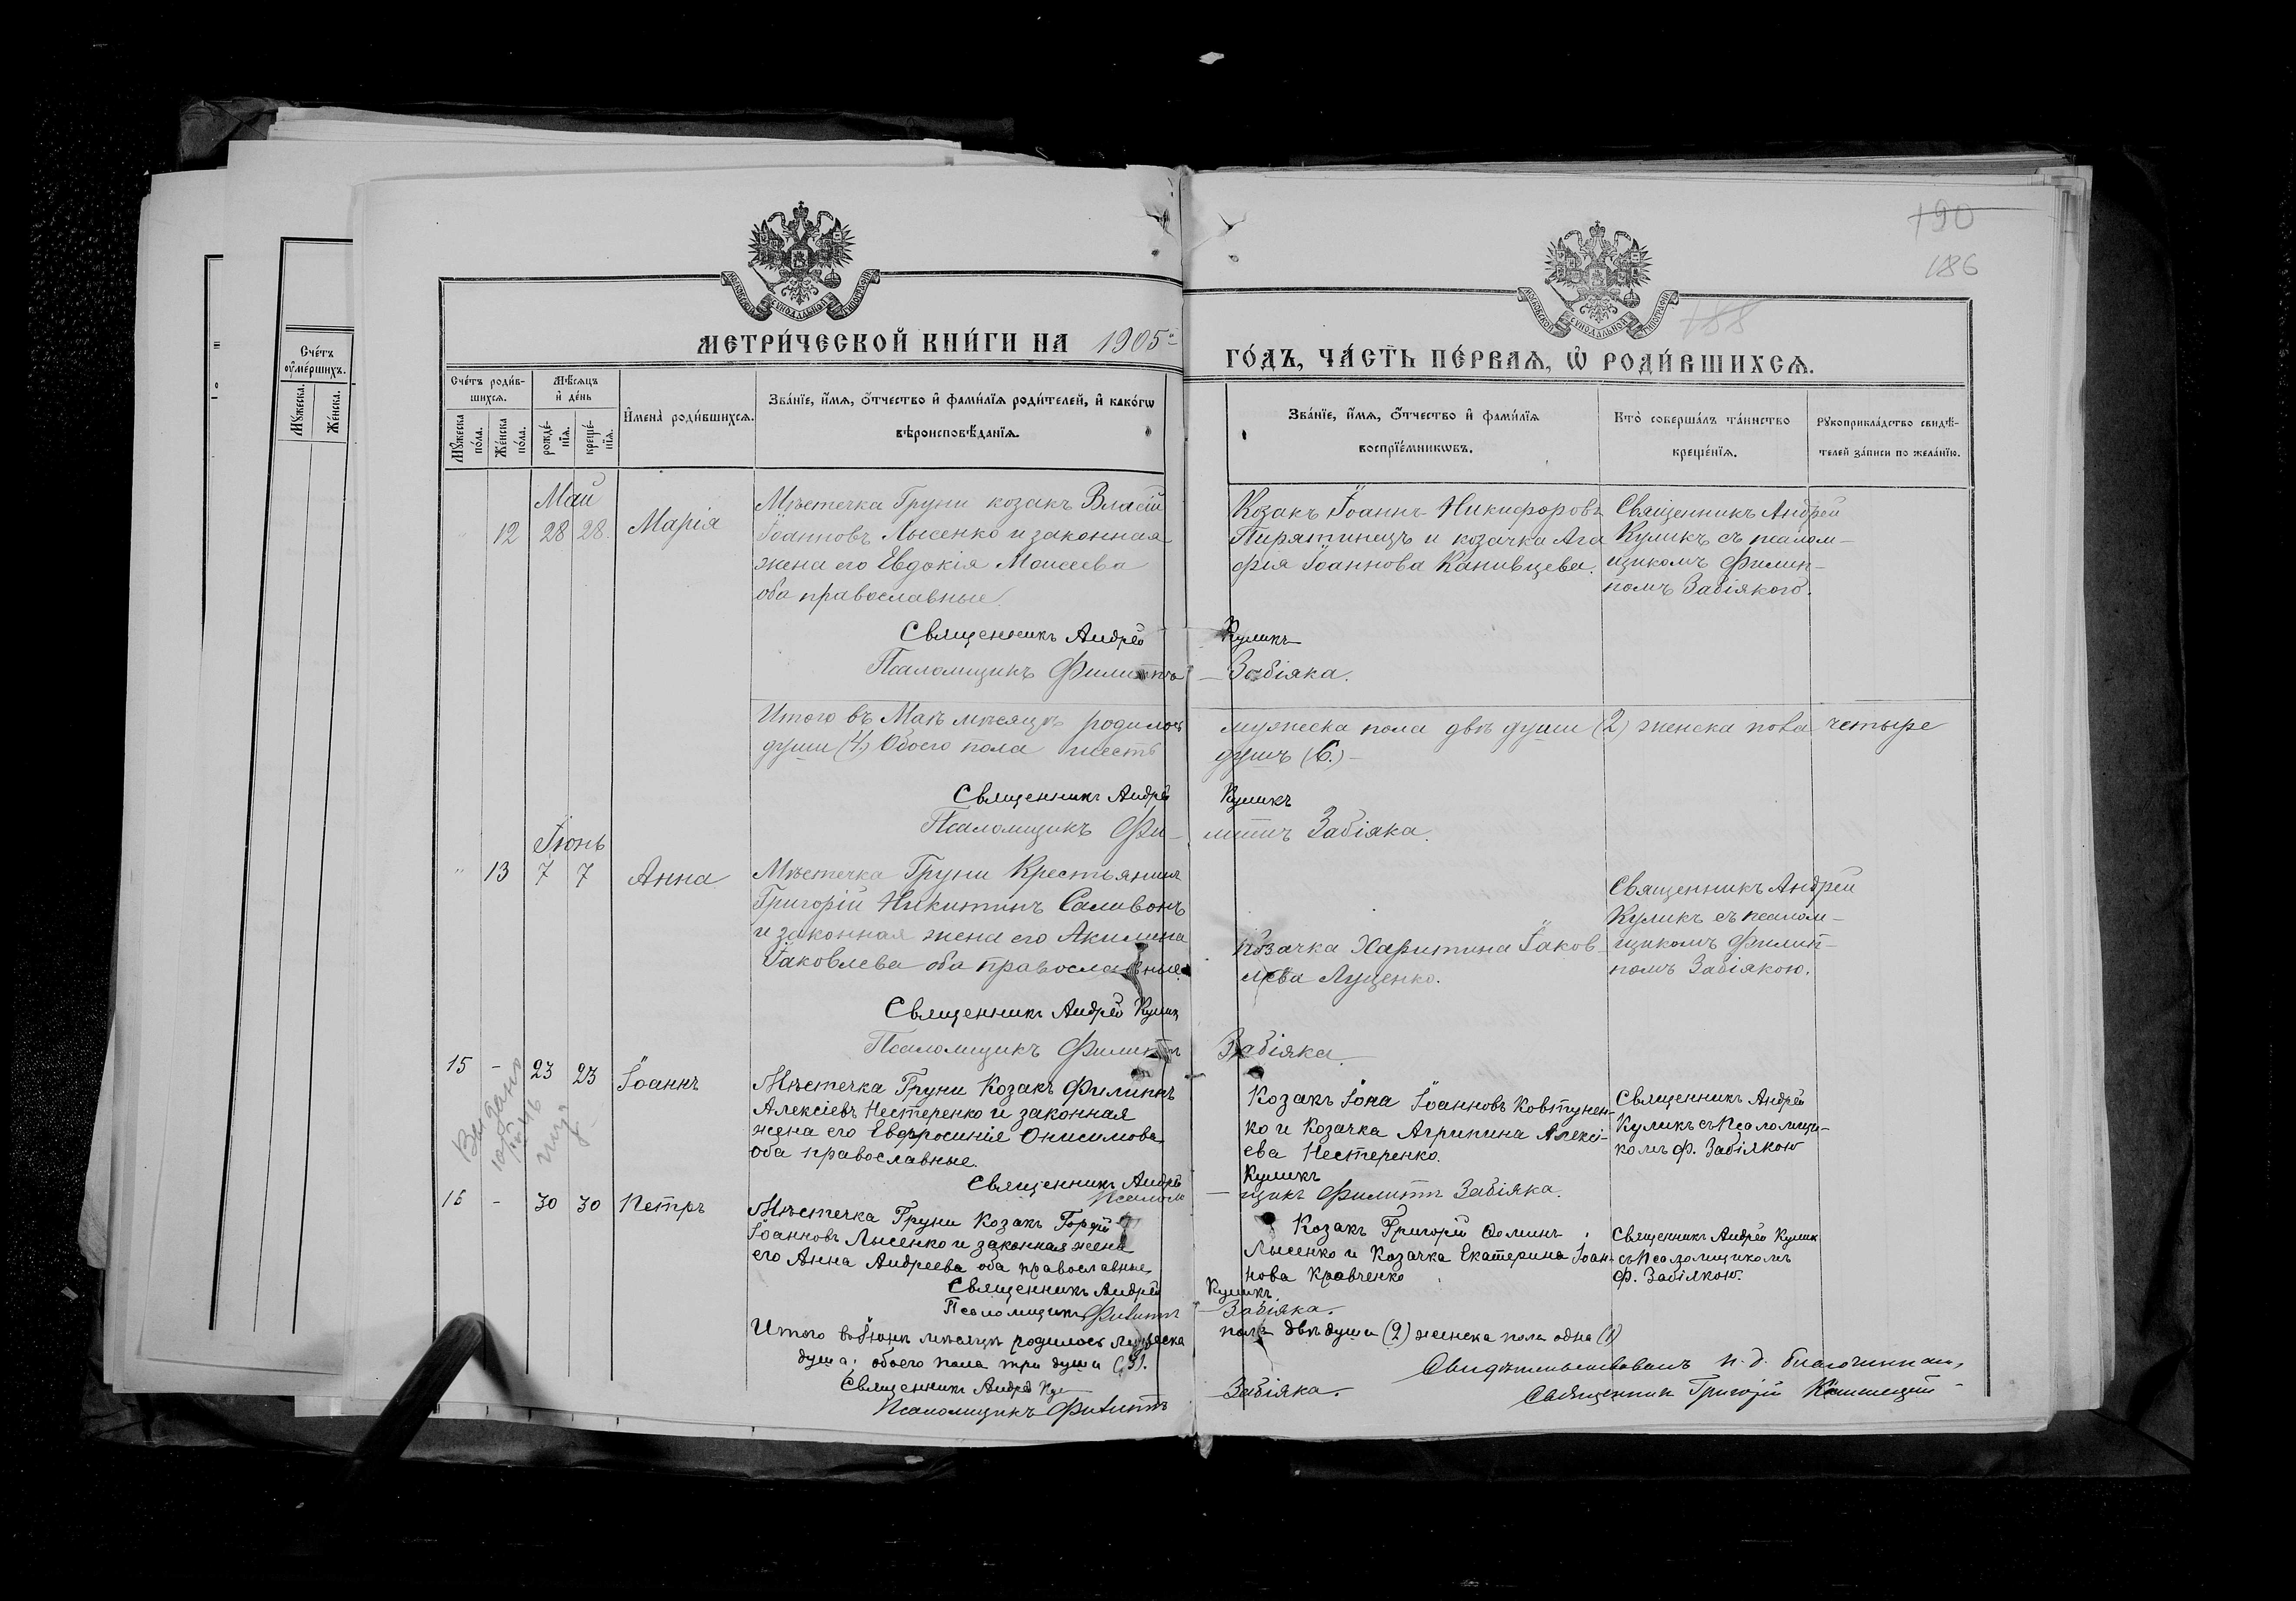 190
186
188
МОСКОВСКОЙ СѴНОДАЛЬНОЙ ТИПОГРАФІИ
МОСКОВСКОЙ СѴНОДАЛЬНОЙ ТИПОГРАФІИ
МЕТРИ́ЧЕСКОЙ КНИ́ГИ НА 1905й
ГО́ДЪ, ЧА́СТЬ ПЕ́РВАѦ, Ѡ҆ РОДИ́ВШИХСѦ.
Сче́тъ оу҆ме́ршихъ.
Мꙋ́жеска.
Же́нска.
Сче́тъ роди́в-
шихсѧ.
Мꙋ́жеска по́ла.
Же́нска по́ла.
Мѣ́сѧцъ и҆ де́нь
рожде́-
нїѧ.
креще́-
нїѧ.
И҆мена̀ роди́вшихсѧ.
Зва́нїе, и҆́мѧ, ѻ҆́тчество и҆ фами́лїѧ роди́телей, и҆ како́гѡ
вѣроисповѣ́данїѧ.
Зва́нїе, и҆́мѧ, ѻ҆́тчество и҆ фами́лїѧ
воспрїе́мникѡвъ.
Кто̀ соверша́лъ та́инство
креще́нїѧ.
Рꙋкоприкла́дство свидѣ́-
телей за́писи по жела́нїю.
Май
" 12 28 28. Марія
Мѣстечка Груни козакъ Власій
Іоанновъ Лысенко и законная
жена его Евдокія Моисеева
оба православные.
Козакъ Іоаннъ Никифоровъ
Пирятинецъ и козачка Ага
фія Іоаннова Канивцева.
Священникъ Андрей
Куликъ съ псалом-
щикомъ Филип-
помъ Забіякою.
Священникъ Андрей Куликъ
Псаломщикъ Филиппъ Забіяка.
Итого въ Маѣ мѣсяцѣ родилось мужеска пола двѣ души (2) женска пола четыре
души (4) Обоего пола шесть душъ (6.)-
Священникъ Андрей Куликъ
Псаломщикъ Фи- липпъ Забіяка.
Іюнь
" 13 7 7 Анна
Мѣстечка Груни Крестьянинъ
Григорій Никитинъ Саливонъ
и законная жена его Акилина
Іаковлева оба православные.
Козачка Харитина Іаков
лева Луценко.
Священникъ Андрей
Куликъ съ псалом-
щикомъ Филип-
помъ Забіякою.
Священникъ Андрей Куликъ
Псаломщикъ Филиппъ Забіяка
15 - 23 23 Іоаннъ
Выдано
Мѣстечка Груни Козакъ Филиппъ
Алексіевъ Нестеренко и законная
жена его Евфросинія Онисимова
оба православные.
Козакъ Іона Іоанновъ Ковтунен-
ко и Козачка Агрипина Алексі-
ева Нестеренко.
Священникъ Андрей
Куликъ съ Псаломщи-
комъ Ф. Забіякою
Священникъ Андрей Куликъ
Псалом- щикъ Филиппъ Забіяка.
16 - 30 30 Петръ
Мѣстечка Груни Козакъ Гордій
Іоанновъ Лысенко и законная жена
его Анна Андреева оба православные
Козакъ Григорій Ѳоминъ
Лысенко и Козачка Екатерина Іоан-
нова Кравченко
Священникъ Андрей Куликъ
съ Псаломщикомъ
Ф. Забіякою.
Священникъ Андрей Куликъ
Псаломщикъ Филиппъ Забіяка.
Итого въ Іюнѣ мѣсяцѣ родилось мужеска пола двѣ души (2) женска пола одна (1)
душа; обоего пола три души (3).
Священникъ Андрей
Псаломщикъ Филиппъ Забіяка.
Свидѣтельствовалъ и. д. благочиннаго,
Священник Григорій